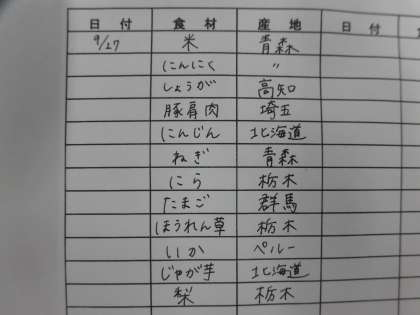 日付 食材 産地 日付
9/27 米 青森
にんにく 〃
しょうが 高知
豚肩肉 埼玉
にんじん 北海道
ねぎ 青森
にら 栃木
たまご 群馬
ほうれん草 栃木
いか ペルー
じゃが芋 北海道
梨 栃木